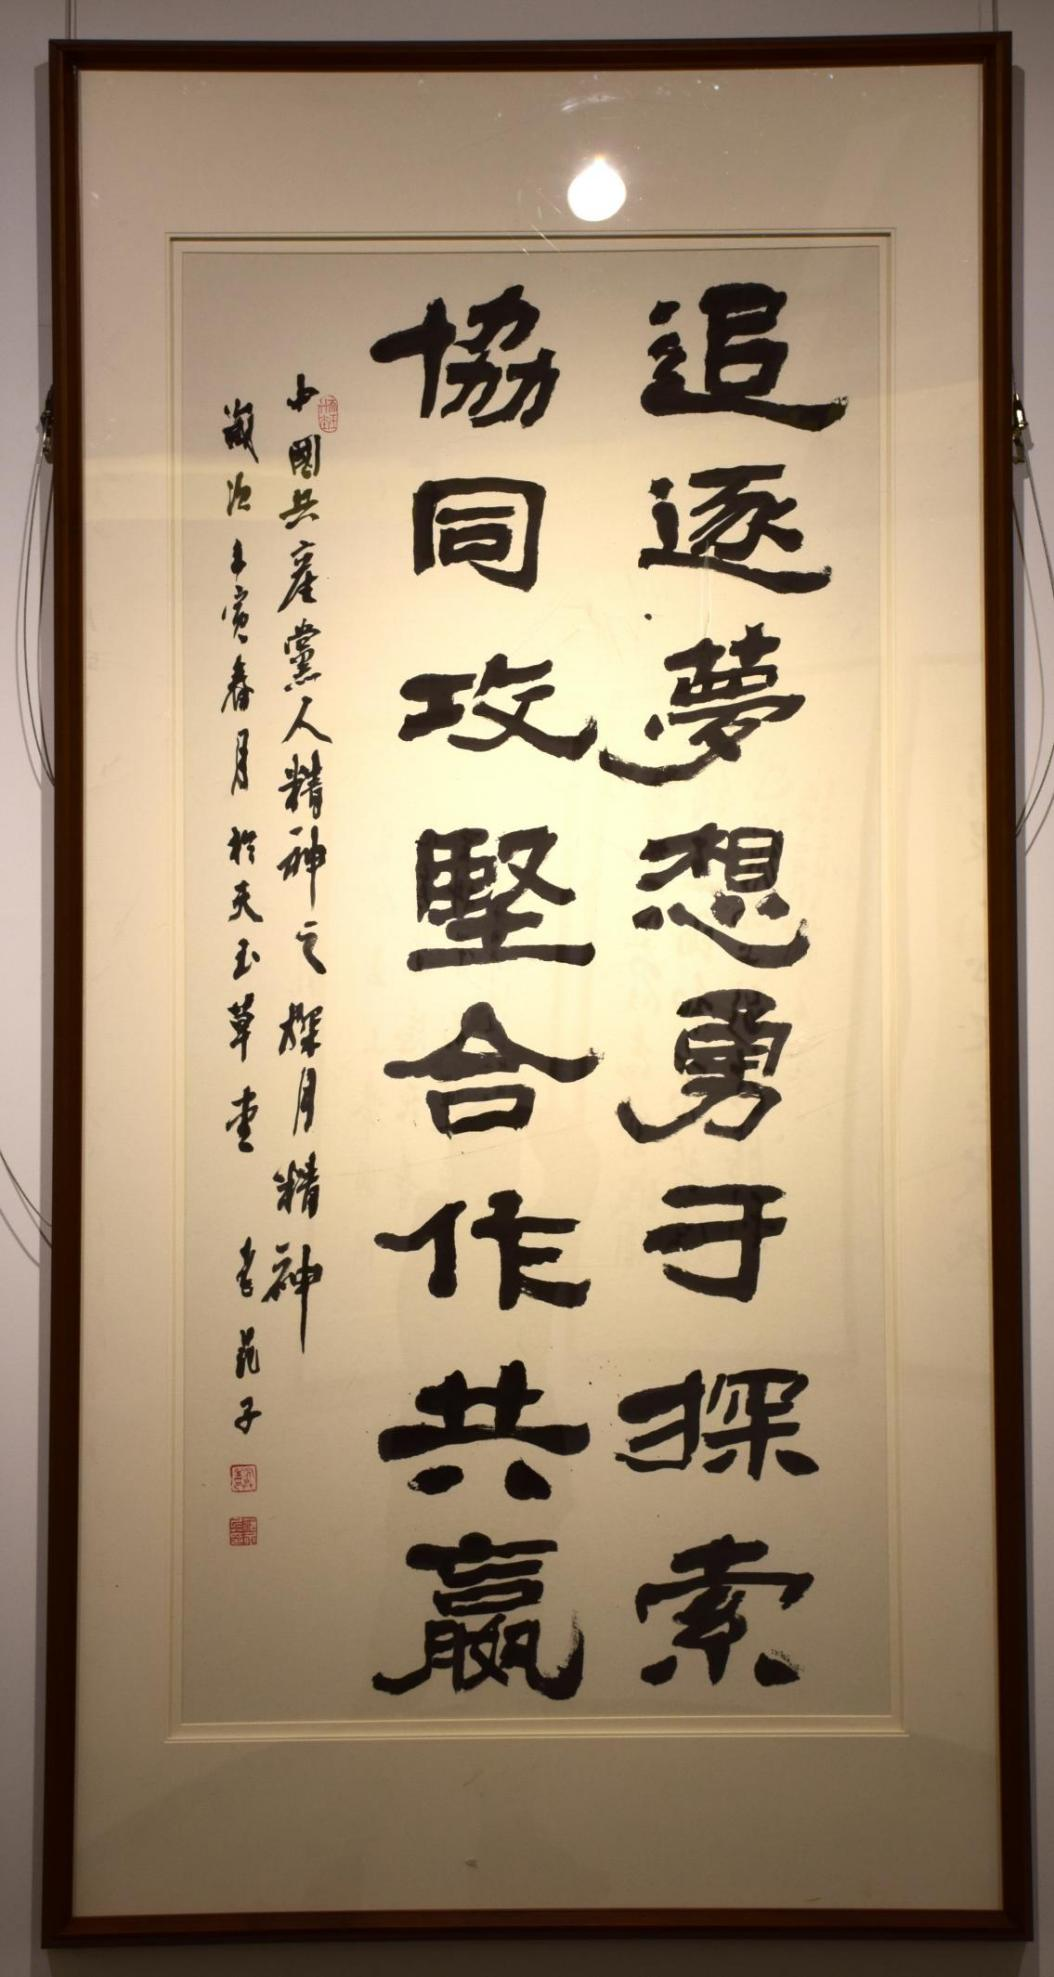 追逐夢想勇于探索
協同攻堅合作共贏
中國共產黨人精神之探月精神
歲次壬寅春月於天玉草堂 李苑子